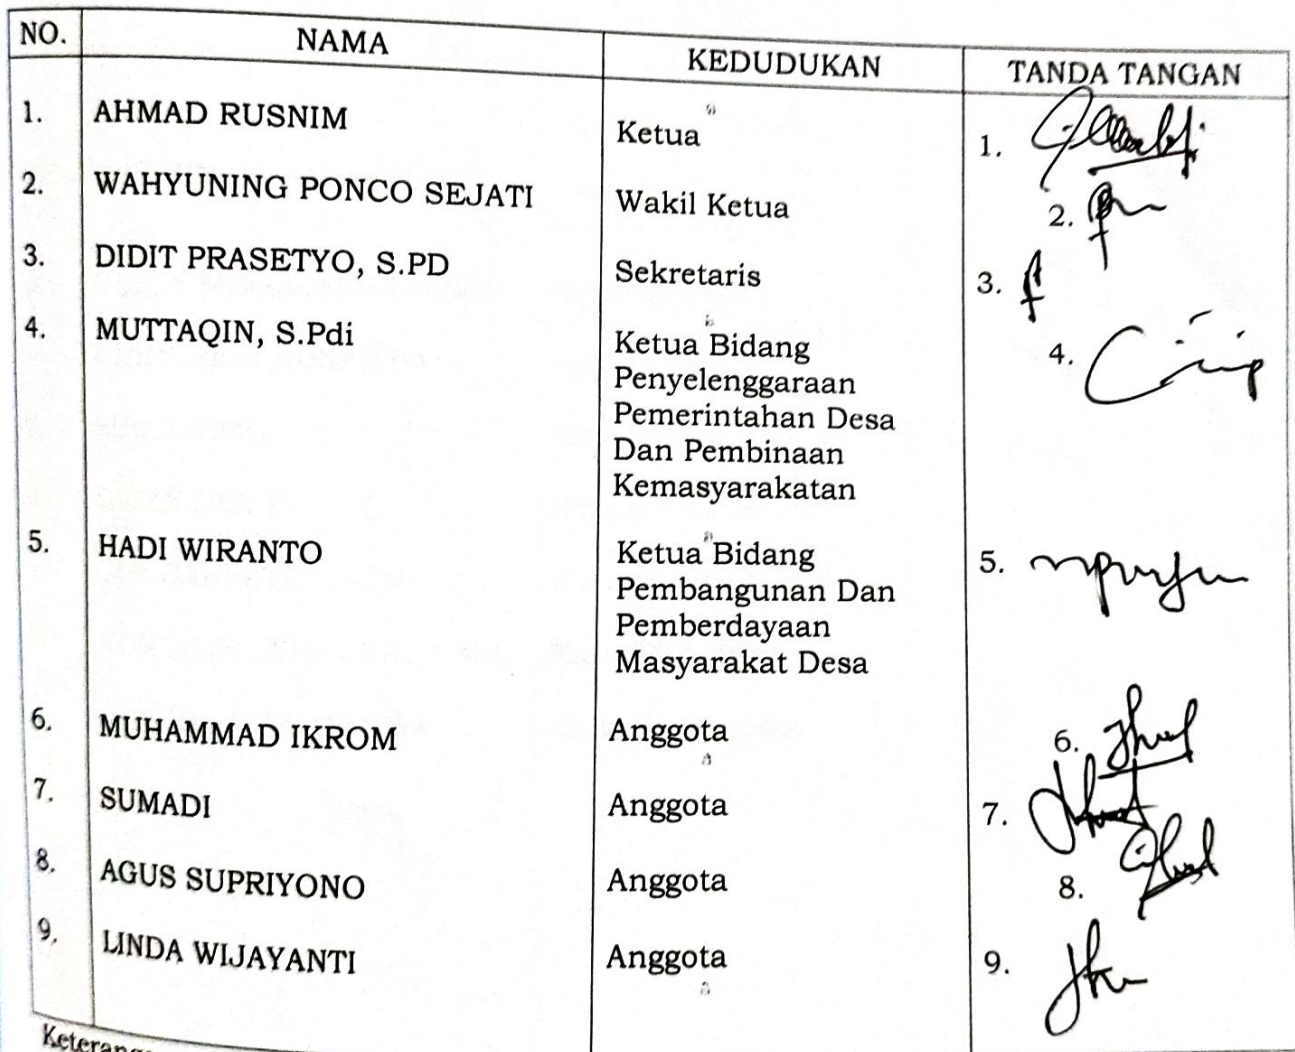 NO. NAMA KEDUDUKAN TANDA TANGAN
1. AHMAD RUSNIM Ketua 1.
2. WAHYUNING PONCO SEJATI Wakil Ketua 2.
3. DIDIT PRASETYO, S.PD Sekretaris 3.
4. MUTTAQIN, S.Pdi Ketua Bidang 4.
Penyelenggaraan
Pemerintahan Desa
Dan Pembinaan
Kemasyarakatan
5. HADI WIRANTO Ketua Bidang 5.
Pembangunan Dan
Pemberdayaan
Masyarakat Desa
6. MUHAMMAD IKROM Anggota 6.
7. SUMADI Anggota 7.
8. AGUS SUPRIYONO Anggota 8.
9. LINDA WIJAYANTI Anggota 9.